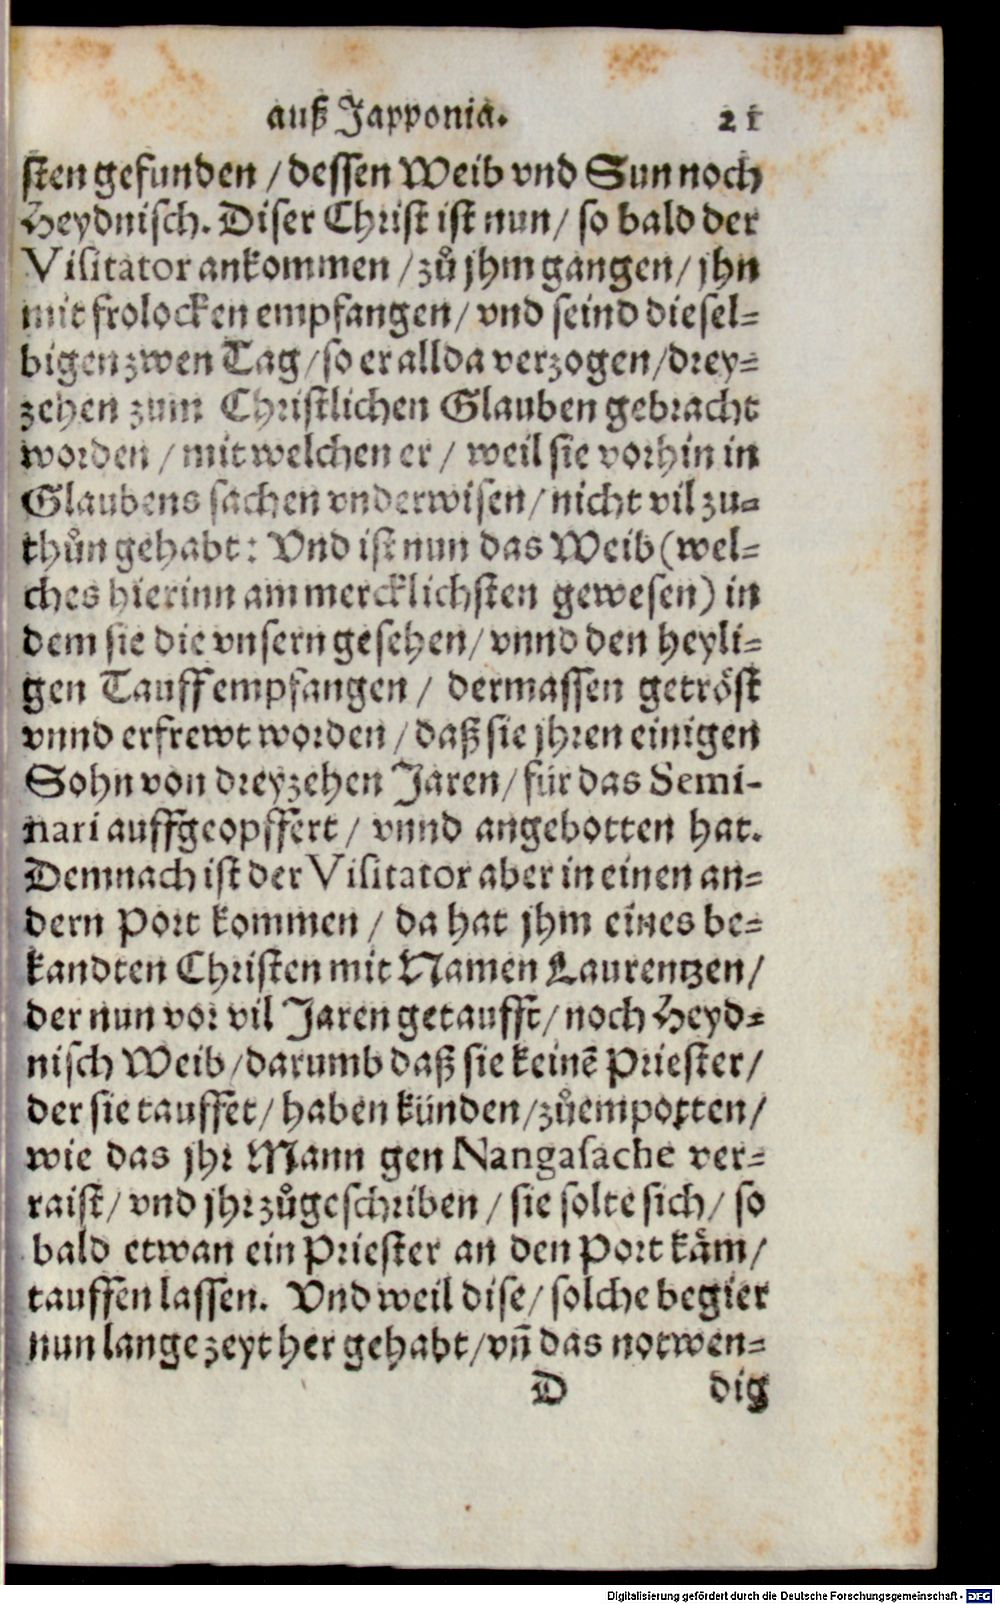 auß Japponia. 21
sten gefunden / dessen Weib vnd Sun noch
Heydnisch. Diser Christ ist nun / so bald der
Visitator ankommen / zů jhm gangen / jhn
mit frolocken empfangen / vnd seind diesel-
bigen zwen Tag / so er allda verzogen / drey-
zehen zum Christlichen Glauben gebracht
worden / mit welchen er / weil sie vorhin in
Glaubens sachen vnderwisen / nicht vil zu-
thůn gehabt: Vnd ist nun das Weib (wel-
ches hierinn am mercklichsten gewesen) in
dem sie die vnsern gesehen / vnnd den heyli-
gen Tauff empfangen / dermassen getröst
vnnd erfrewt worden / daß sie jhren einigen
Sohn von dreyzehen Jaren / für das Semi-
nari auffgeopffert / vnnd angebotten hat.
Demnach ist der Visitator aber in einen an-
dern Port kommen / da hat jhm eines be-
kandten Christen mit Namen Laurentzen /
der nun vor vil Jaren getaufft / noch Heyd-
nisch Weib / darumb daß sie keinē Priester /
der sie tauffet / haben künden / zůempotten /
wie das jhr Mann gen Nangasache ver-
raist / vnd jhr zůgeschriben / sie solte sich / so
bald etwan ein Priester an den Port käm /
tauffen lassen. Vnd weil dise / solche begier
nun lange zeyt her gehabt / vn̄ das notwen-
D dig
Digitalisierung gefördert durch die Deutsche Forschungsgemeinschaft - DFG